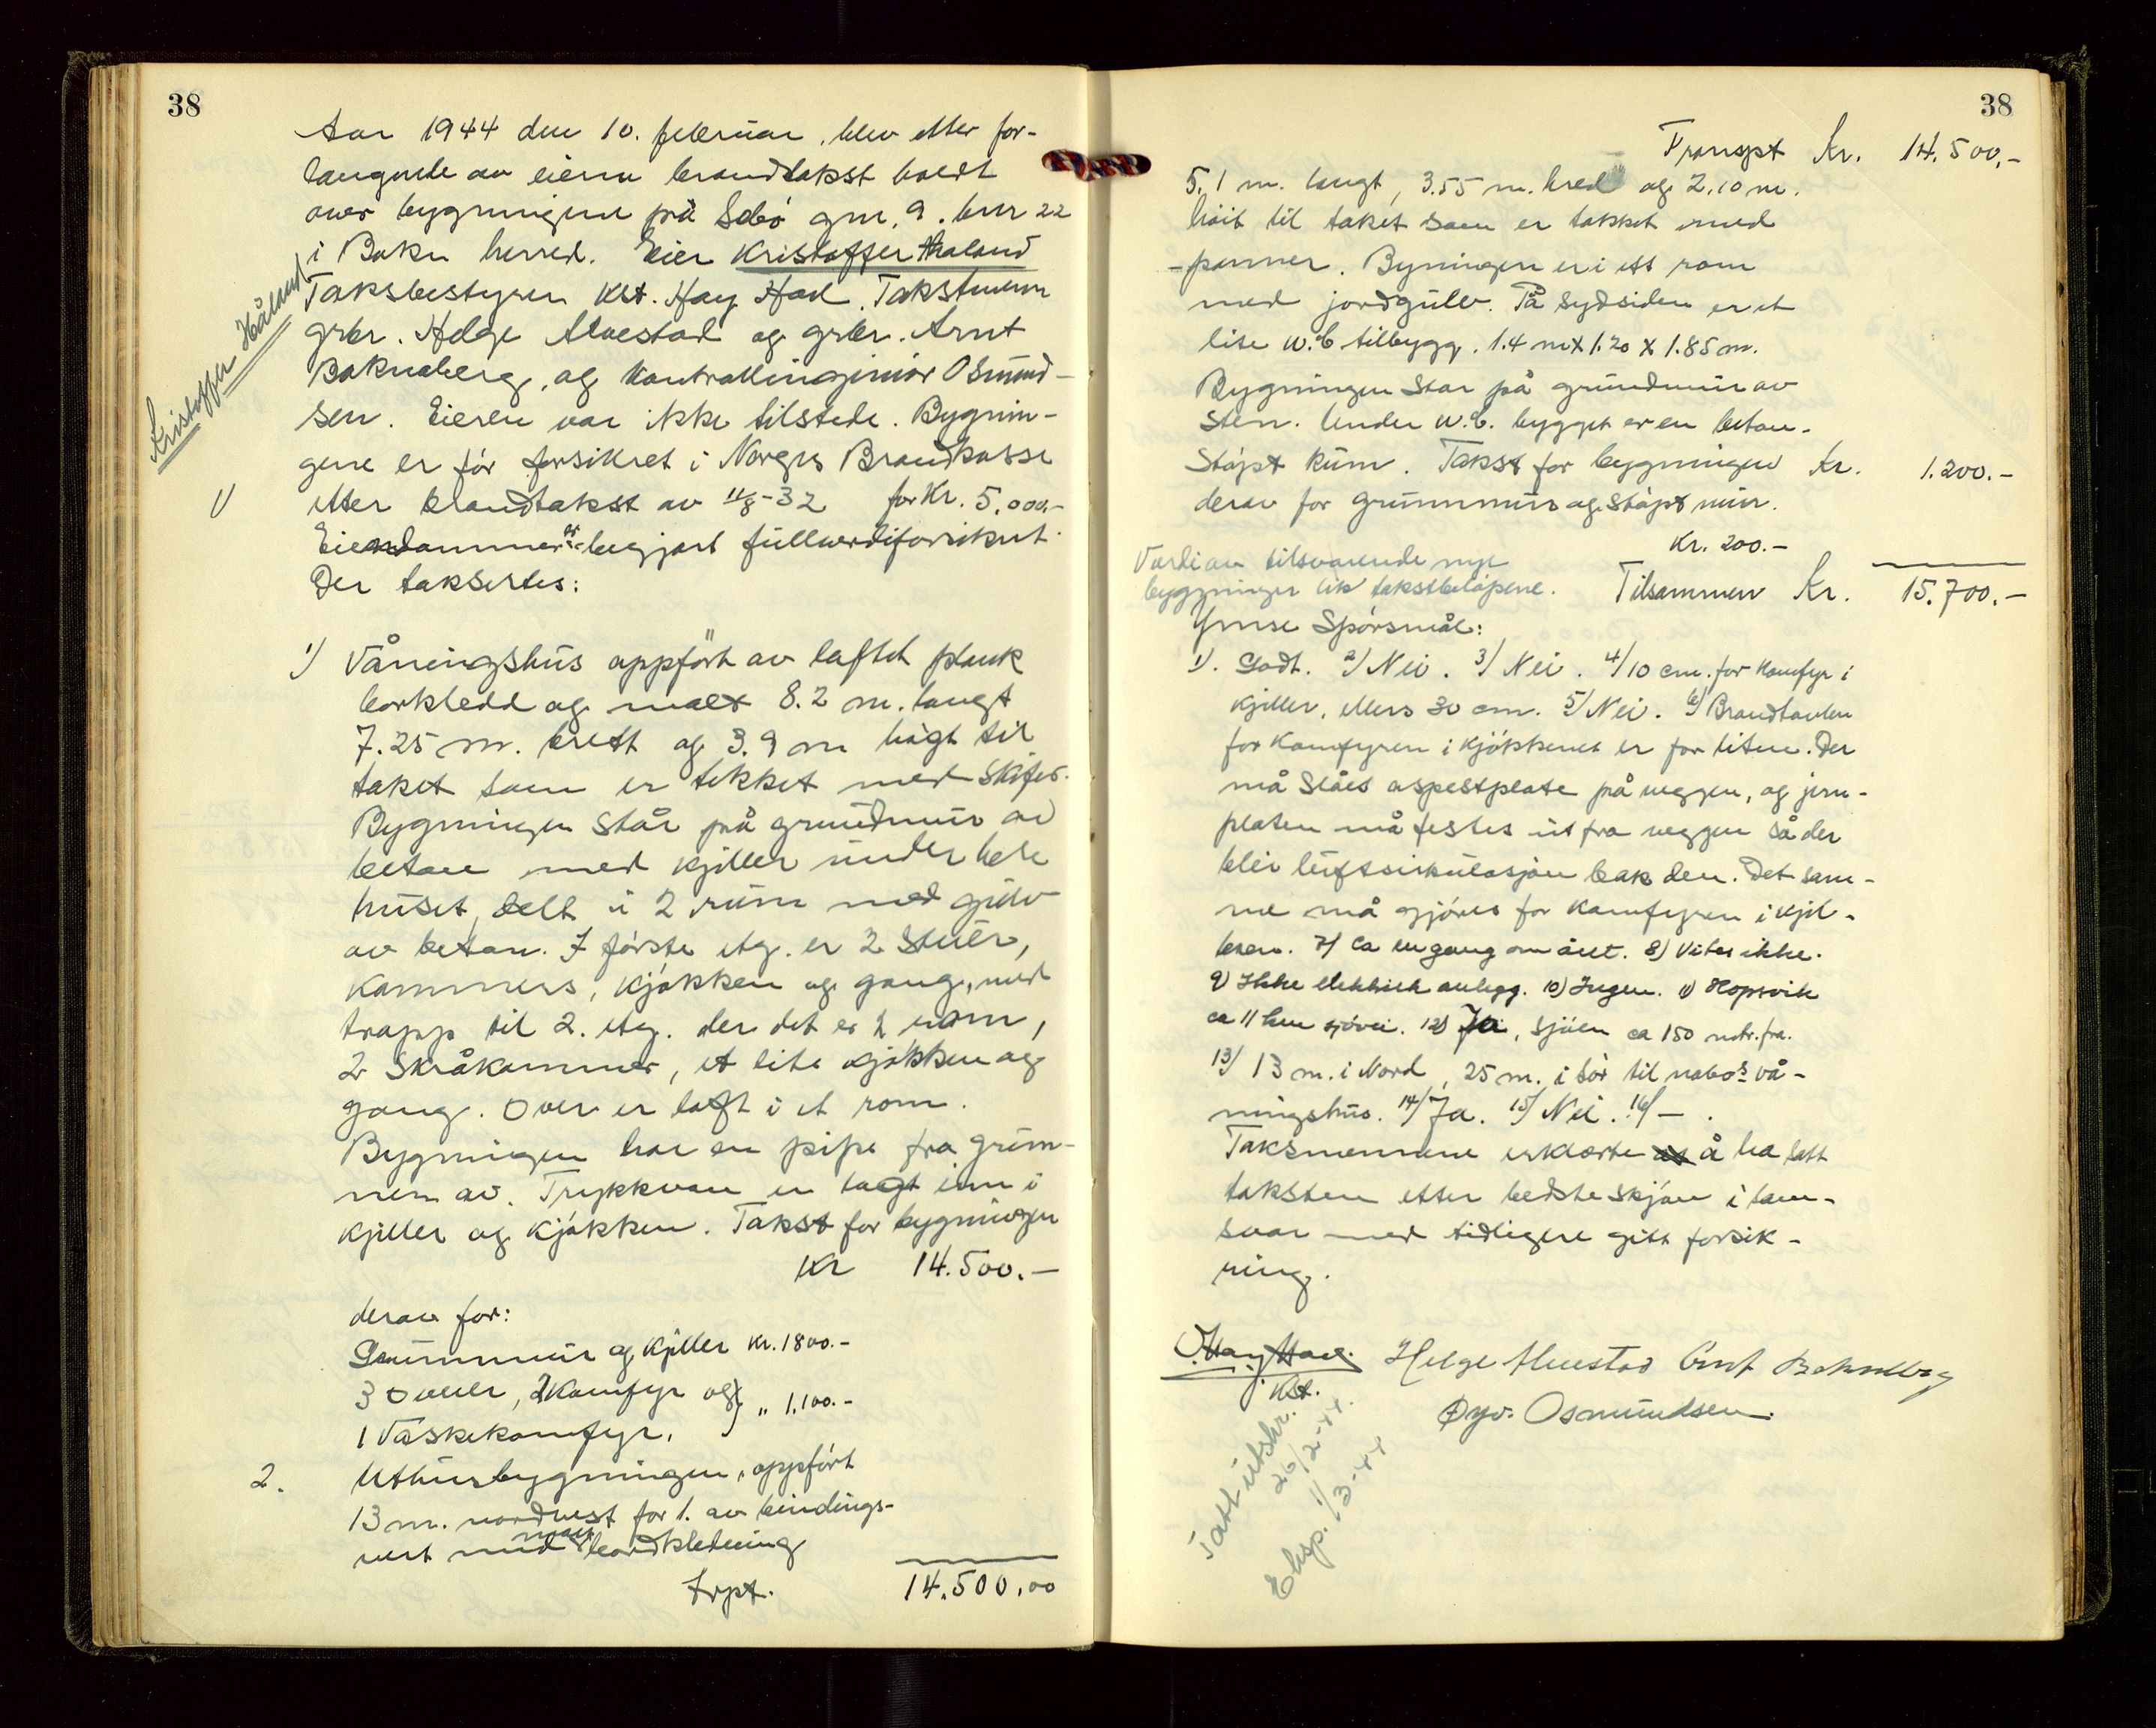 38
Aar 1944 den 10. februar, blev etter for-
langende av eieren brandtakst holdt
over bygningene på Sebø gnr. 9. bnr 22
i Bokn herred. Eier Kristoffer Haaland
Taksbestyrer kst. Hay Takstmenn
grbr. Helge Alvestad og grbr. Arnt
Boknaberg, og Kontrollingeniør Osmund-
sen. Eieren var ikke tilstede. Bygnin-
gene er før forsikret i Norges Brandkasse
etter brandtakst av 11/8-32 for Kr. 5.000.-
Eiendommen er begjært fullverdiforsikret.
Der taksertes:
Kristoffer Håland
1/
1) Våningshus oppført av laftet plank
borkledd og malt 8.2 m. langt
7.25 m. brett og 3.9 m høgt til
taket som er tekket med skifer.
Bygningen står på grundmur av
betong med kjeller under hele
huset, delt i 2 rum med gulv
av betong. I første etg. er 2 stuer,
kammers, kjøkken og gang, med
trapp til 2. etg. der det er 2 rom,
2 skråkammer, et lite kjøkken og
gang. Over er loft i et rom.
Bygningen har en pipe fra grun-
nen av. Trykkvan er lagt inn i
kjeller og kjøkken. Takst for bygningen
Kr 14.500.-
derav for:
Grunnmur og kjeller kr. 1800.-
3 ovner, 2 Komfyr og } " 1.100.-
1 Vaskekomfyr.
2. Uthusbygningen, oppført
13 m. nordvest for 1. av bindings-
verk med malt bordkledning
Trpt. 14.500,00
38
Transpt Kr. 14.500,-
5.1 m. langt, 3.55 m. bred og 2.10 m.
høit til taket som er takket med
-panner. Byningen er i ett rom
med jordgulv. På sydsiden er et
lite W.C. tilbygg. 1.4 m x 1.20 x 1.85 m.
Bygningen star på grundmur av
sten. Under W.C. bygget er en beton-
støpt kum. Takst for bygningen Kr. 1.200.-
derav for grunnmur og støpt mur.
Kr. 200.-
Verdi av tilsvarende nye
bygninger lik takstbeløpene. Tilsammen Kr. 15.700.-
Ymse Spørsmål:
1). Godt. 2) Nei. 3) Nei. 4/10 cm. for Komfyr i
kjeller, ellers 30 cm. 5/ Nei. 6/ Brandtavlen
for Komfyren i kjøkkenet er for liten. Der
må slåes aspestplate på veggen, og jern-
platen må festes ut fra veggen så der
blir luftsirkulasjon bak den. Det sam-
me må gjøres for Komfyren i kjel-
leren. 7) Ca en gang om året. 8) Vites ikke.
9) Ikke elektrisk anlegg. 10) Ingen. 11) Hopsvik
ca 11 km sjøvei. 12) Ja, sjøen ca 150 mtr. fra.
13/ 13 m. i Nord, 25 m. i sør til nabos vå-
ningshus. 14/ Ja. 15/ Nei. 16/ - .
Taksmennene erklærte å ha satt
taksten etter bedste skjøn i sam-
svar med tidligere gitt forsik-
ring.
Kst.
Helge Alvestad Arnt Boknaberg
Øyv. Osmundsen.
Tatt utskr.
26/2-44.
Eksp. 1/3-44